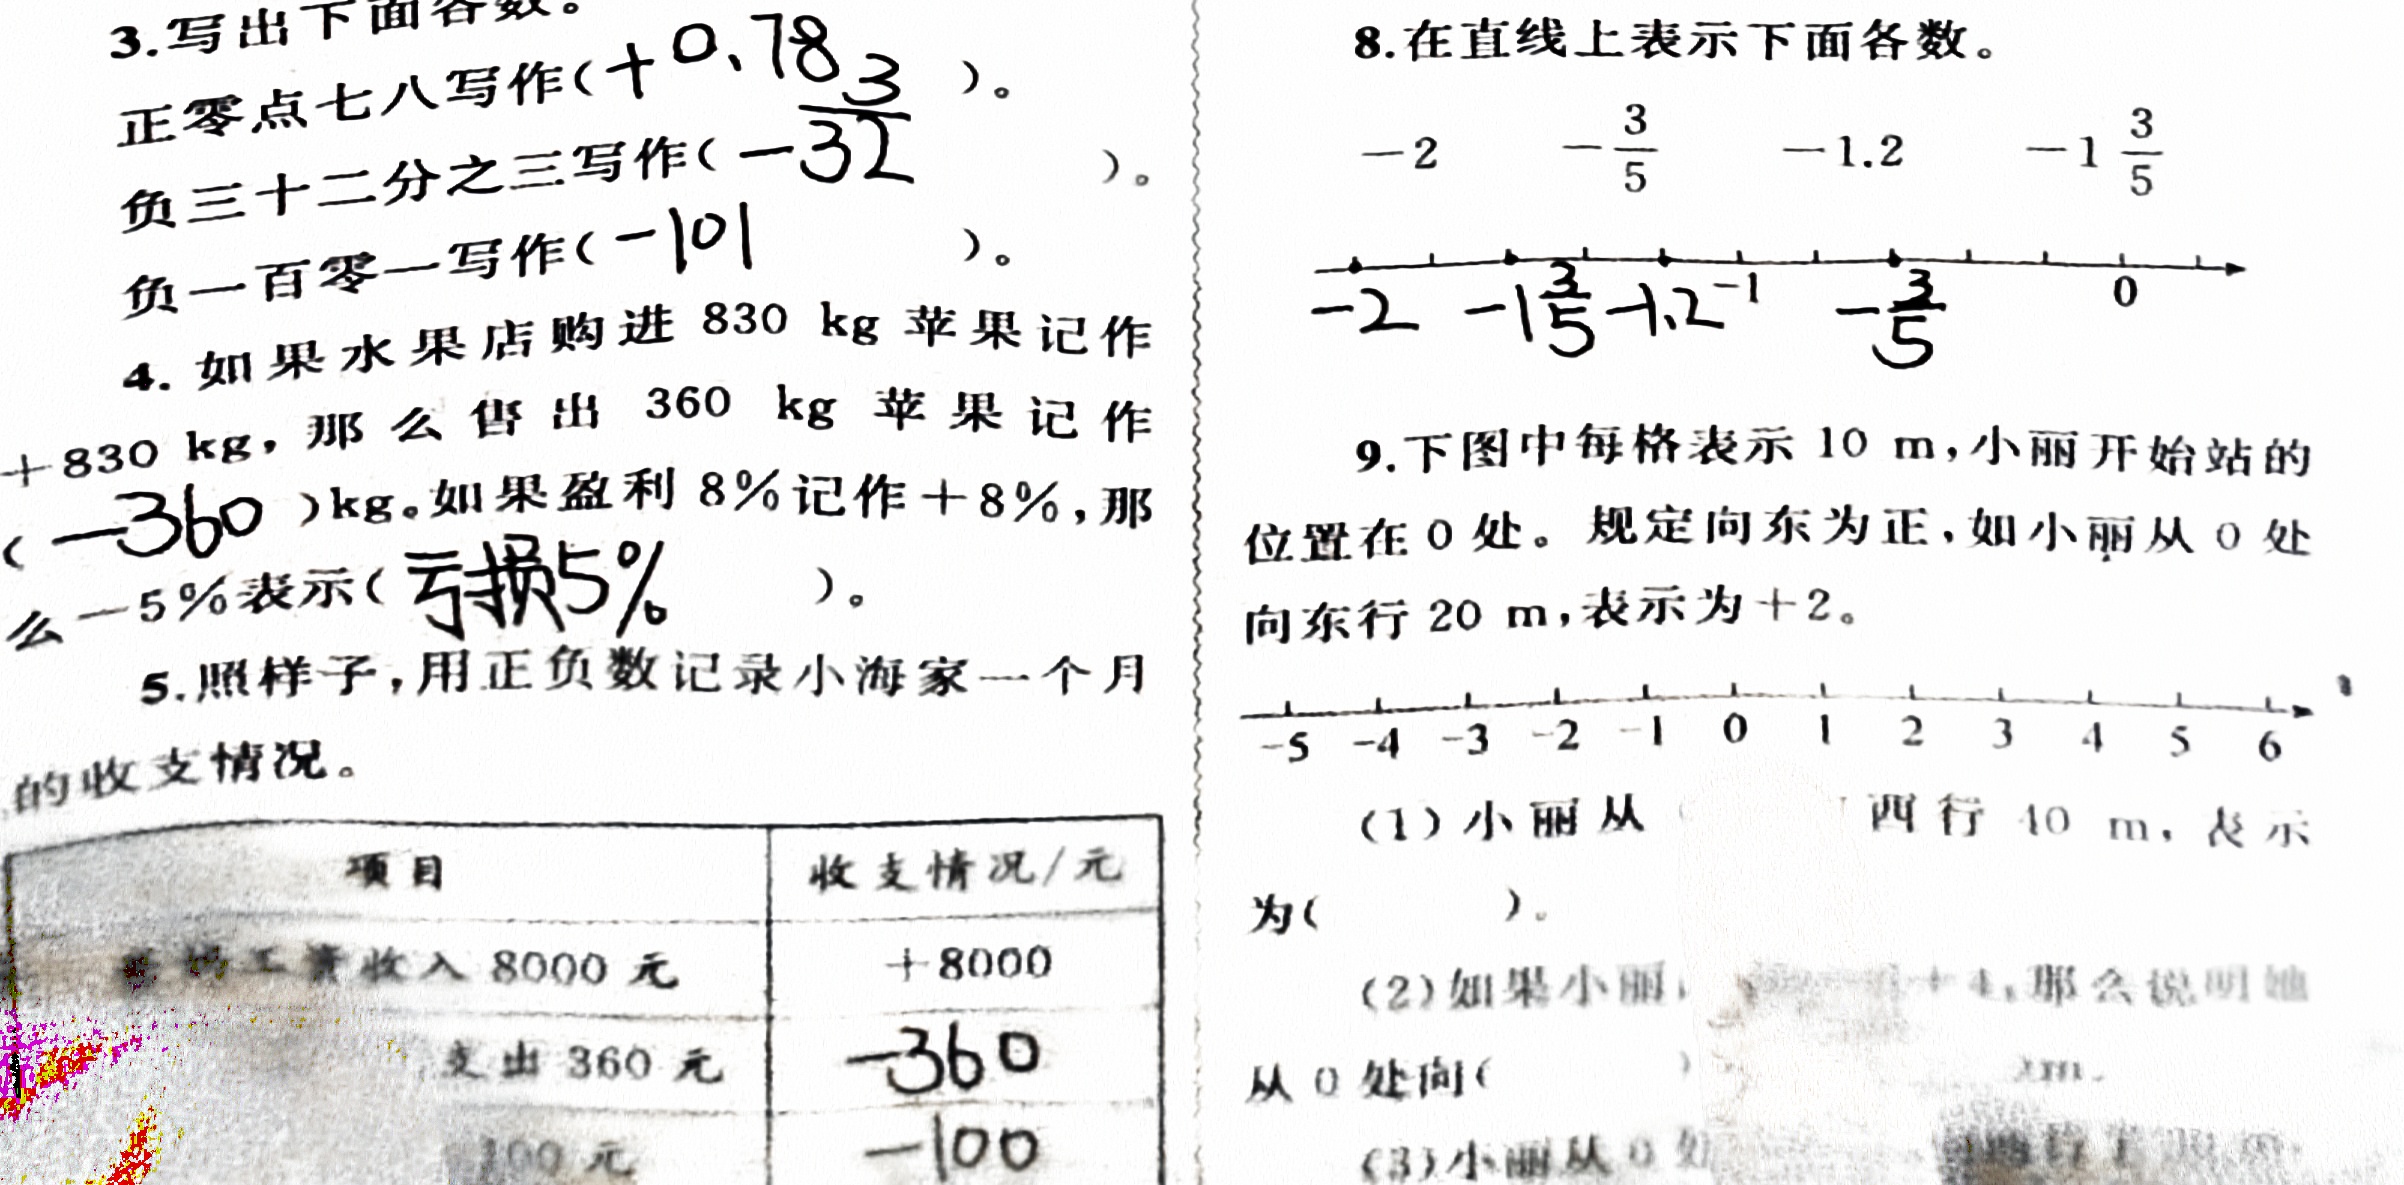 3.写出下面各数。
正零点七八写作(+0.78)。
负三十二分之三写作(-3/32)。
负一百零一写作(-101)。
4.如果水果店购进830 kg苹果记作
+830 kg,那么售出360 kg苹果记作
(-360)kg。如果盈利8%记作+8%,那
么-5%表示(亏损5%)。
5.照样子,用正负数记录小海家一个月
的收支情况。
项目 收支情况/元
工资收入8000元 +8000
支出360元 -360
100元 -100
8.在直线上表示下面各数。
-2 -3/5 -1.2 -1 3/5
-2 -1 3/5 -1.2 -1 -3/5 0
9.下图中每格表示10 m,小丽开始站的
位置在0处。规定向东为正,如小丽从0处
向东行20 m,表示为+2。
-5 -4 -3 -2 -1 0 1 2 3 4 5 6
(1)小丽从 西行40 m,表示
为( )。
(2)如果小丽 +4,那么说明她
从0处向( ) )m。
(3)小丽从0处